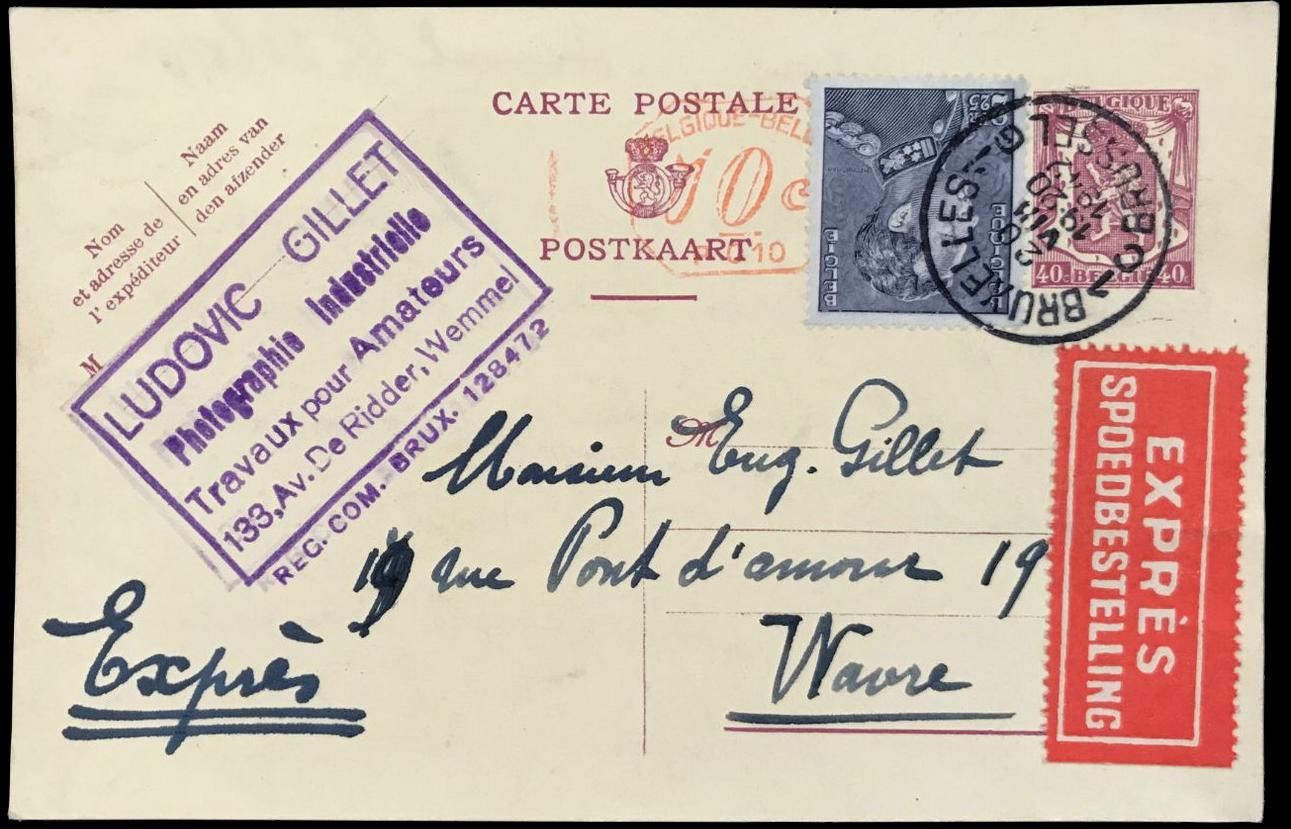 CARTE POSTALE
POSTKAART
Nom
et adresse de
l'expéditeur
Naam
en adres van
den afzender
M
LUDOVIC GILLET
Photographie Industrielle
Travaux pour Amateurs
133, Av. De Ridder, Wemmel
REG. COM. BRUX. 128472
BELGIQUE-BEL
10 c
0 10
BELGIQUE
BELGIE
BELGIQUE
40c BELGIE 40c
BRUXELLES
BRUSSEL
M
Monsieur Eug. Gillet
19 rue Pont d'amour 19
Wavre
Exprès
EXPRÈS
SPOEDBESTELLING